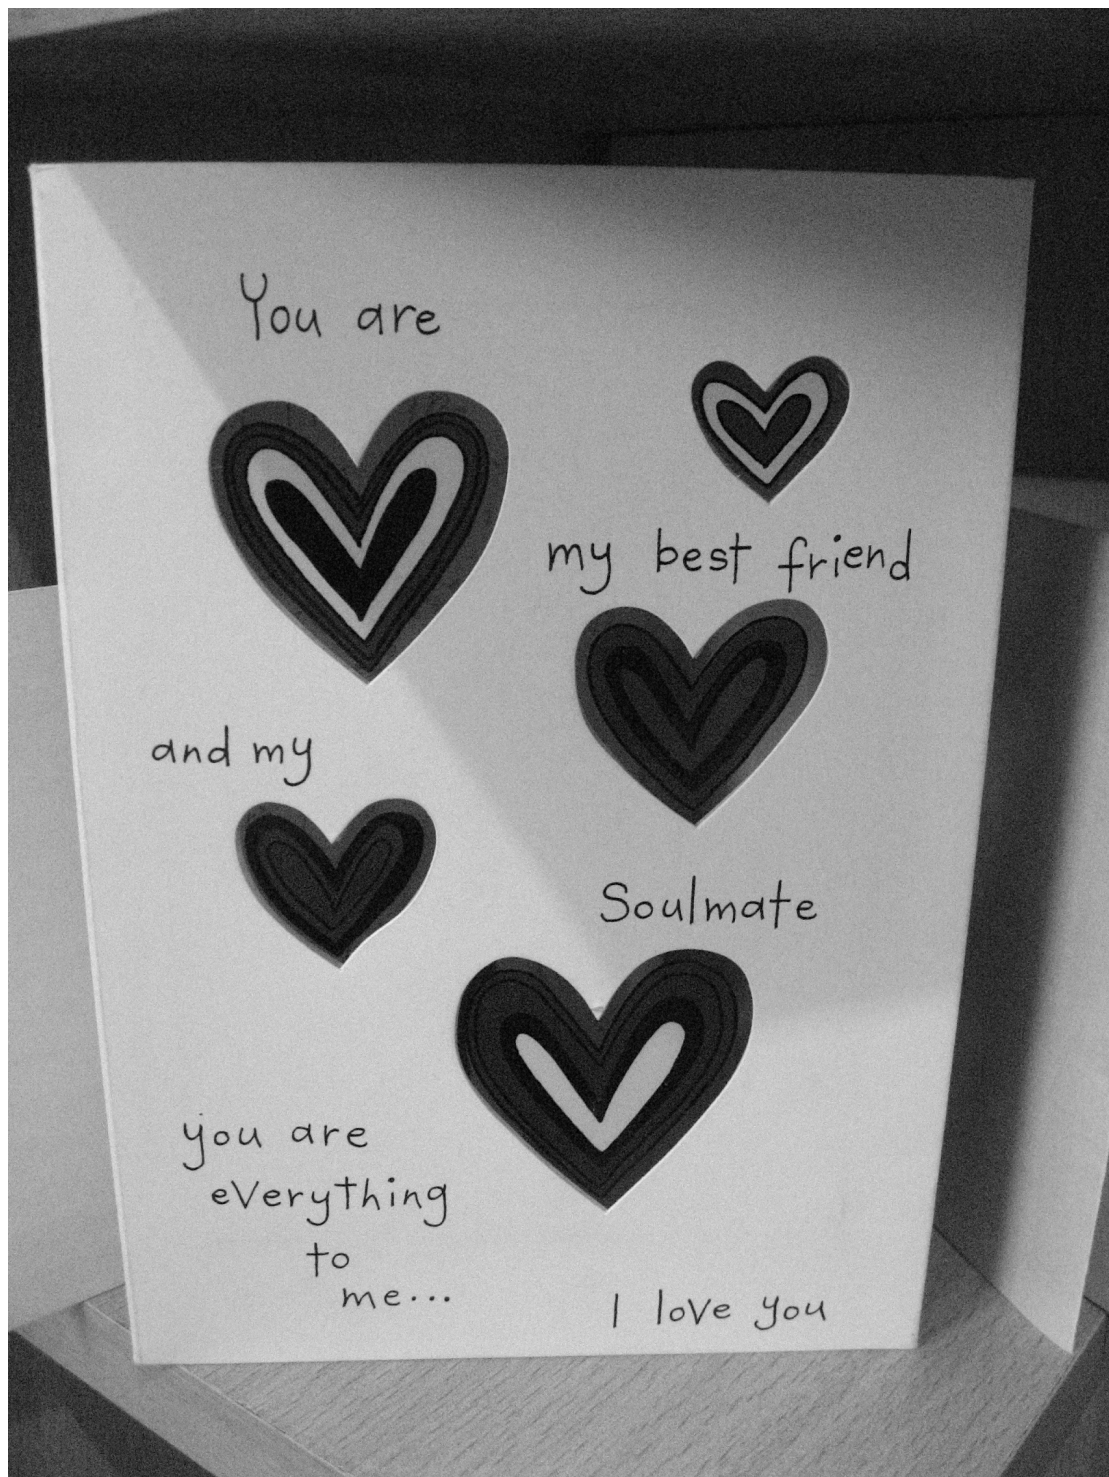 You are
my best friend
and my
Soulmate
you are
everything
to
me...
I love you